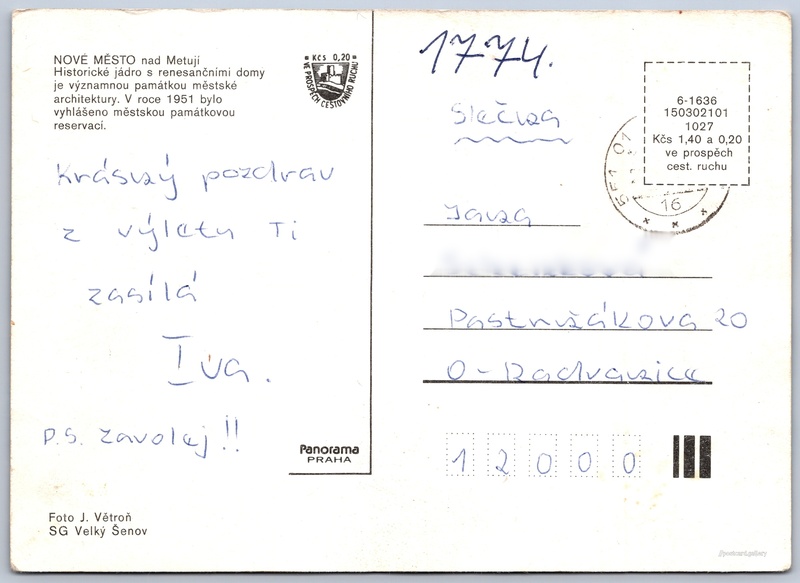 NOVÉ MĚSTO nad Metují
Historické jádro s renesančními domy
je významnou památkou městské
architektury. V roce 1951 bylo
vyhlášeno městskou památkovou
rezervací.
Kčs 0,20
VE PROSPĚCH CESTOVNÍHO RUCHU
Krásný pozdrav
z výletu Ti
zasílá
Iva.
P.S. zavolej!!
Panorama
PRAHA
Foto J. Větroň
SG Velký Šenov
1774.
6-1636
150302101
1027
Kčs 1,40 a 0,20
ve prospěch
cest. ruchu
551 01
16
Slečna
Jana
20
12000
//postcard.gallery